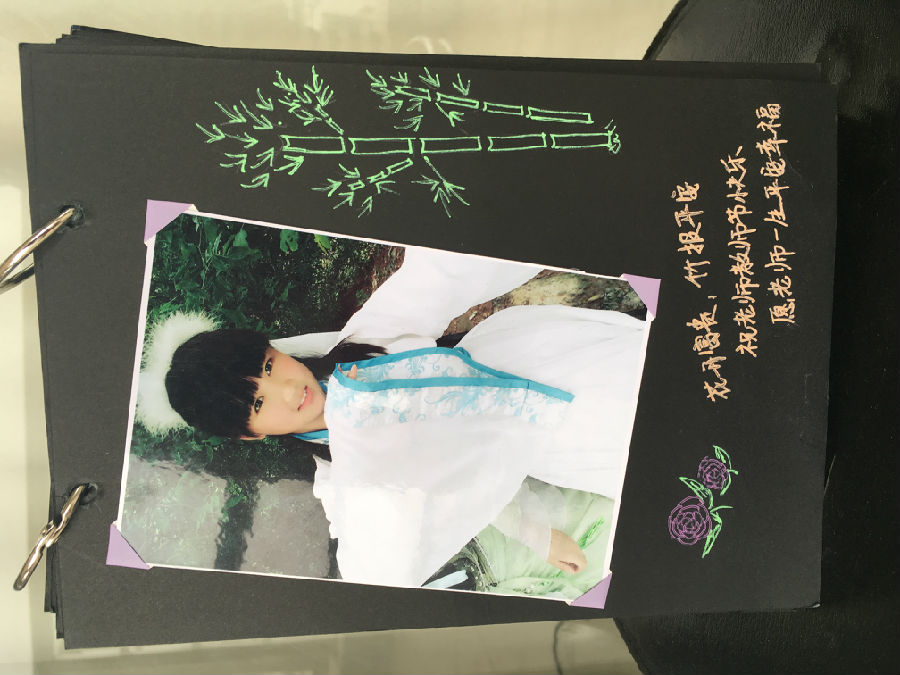 花开富贵，竹报平安
祝老师教师节快乐、
愿老师一生平安幸福